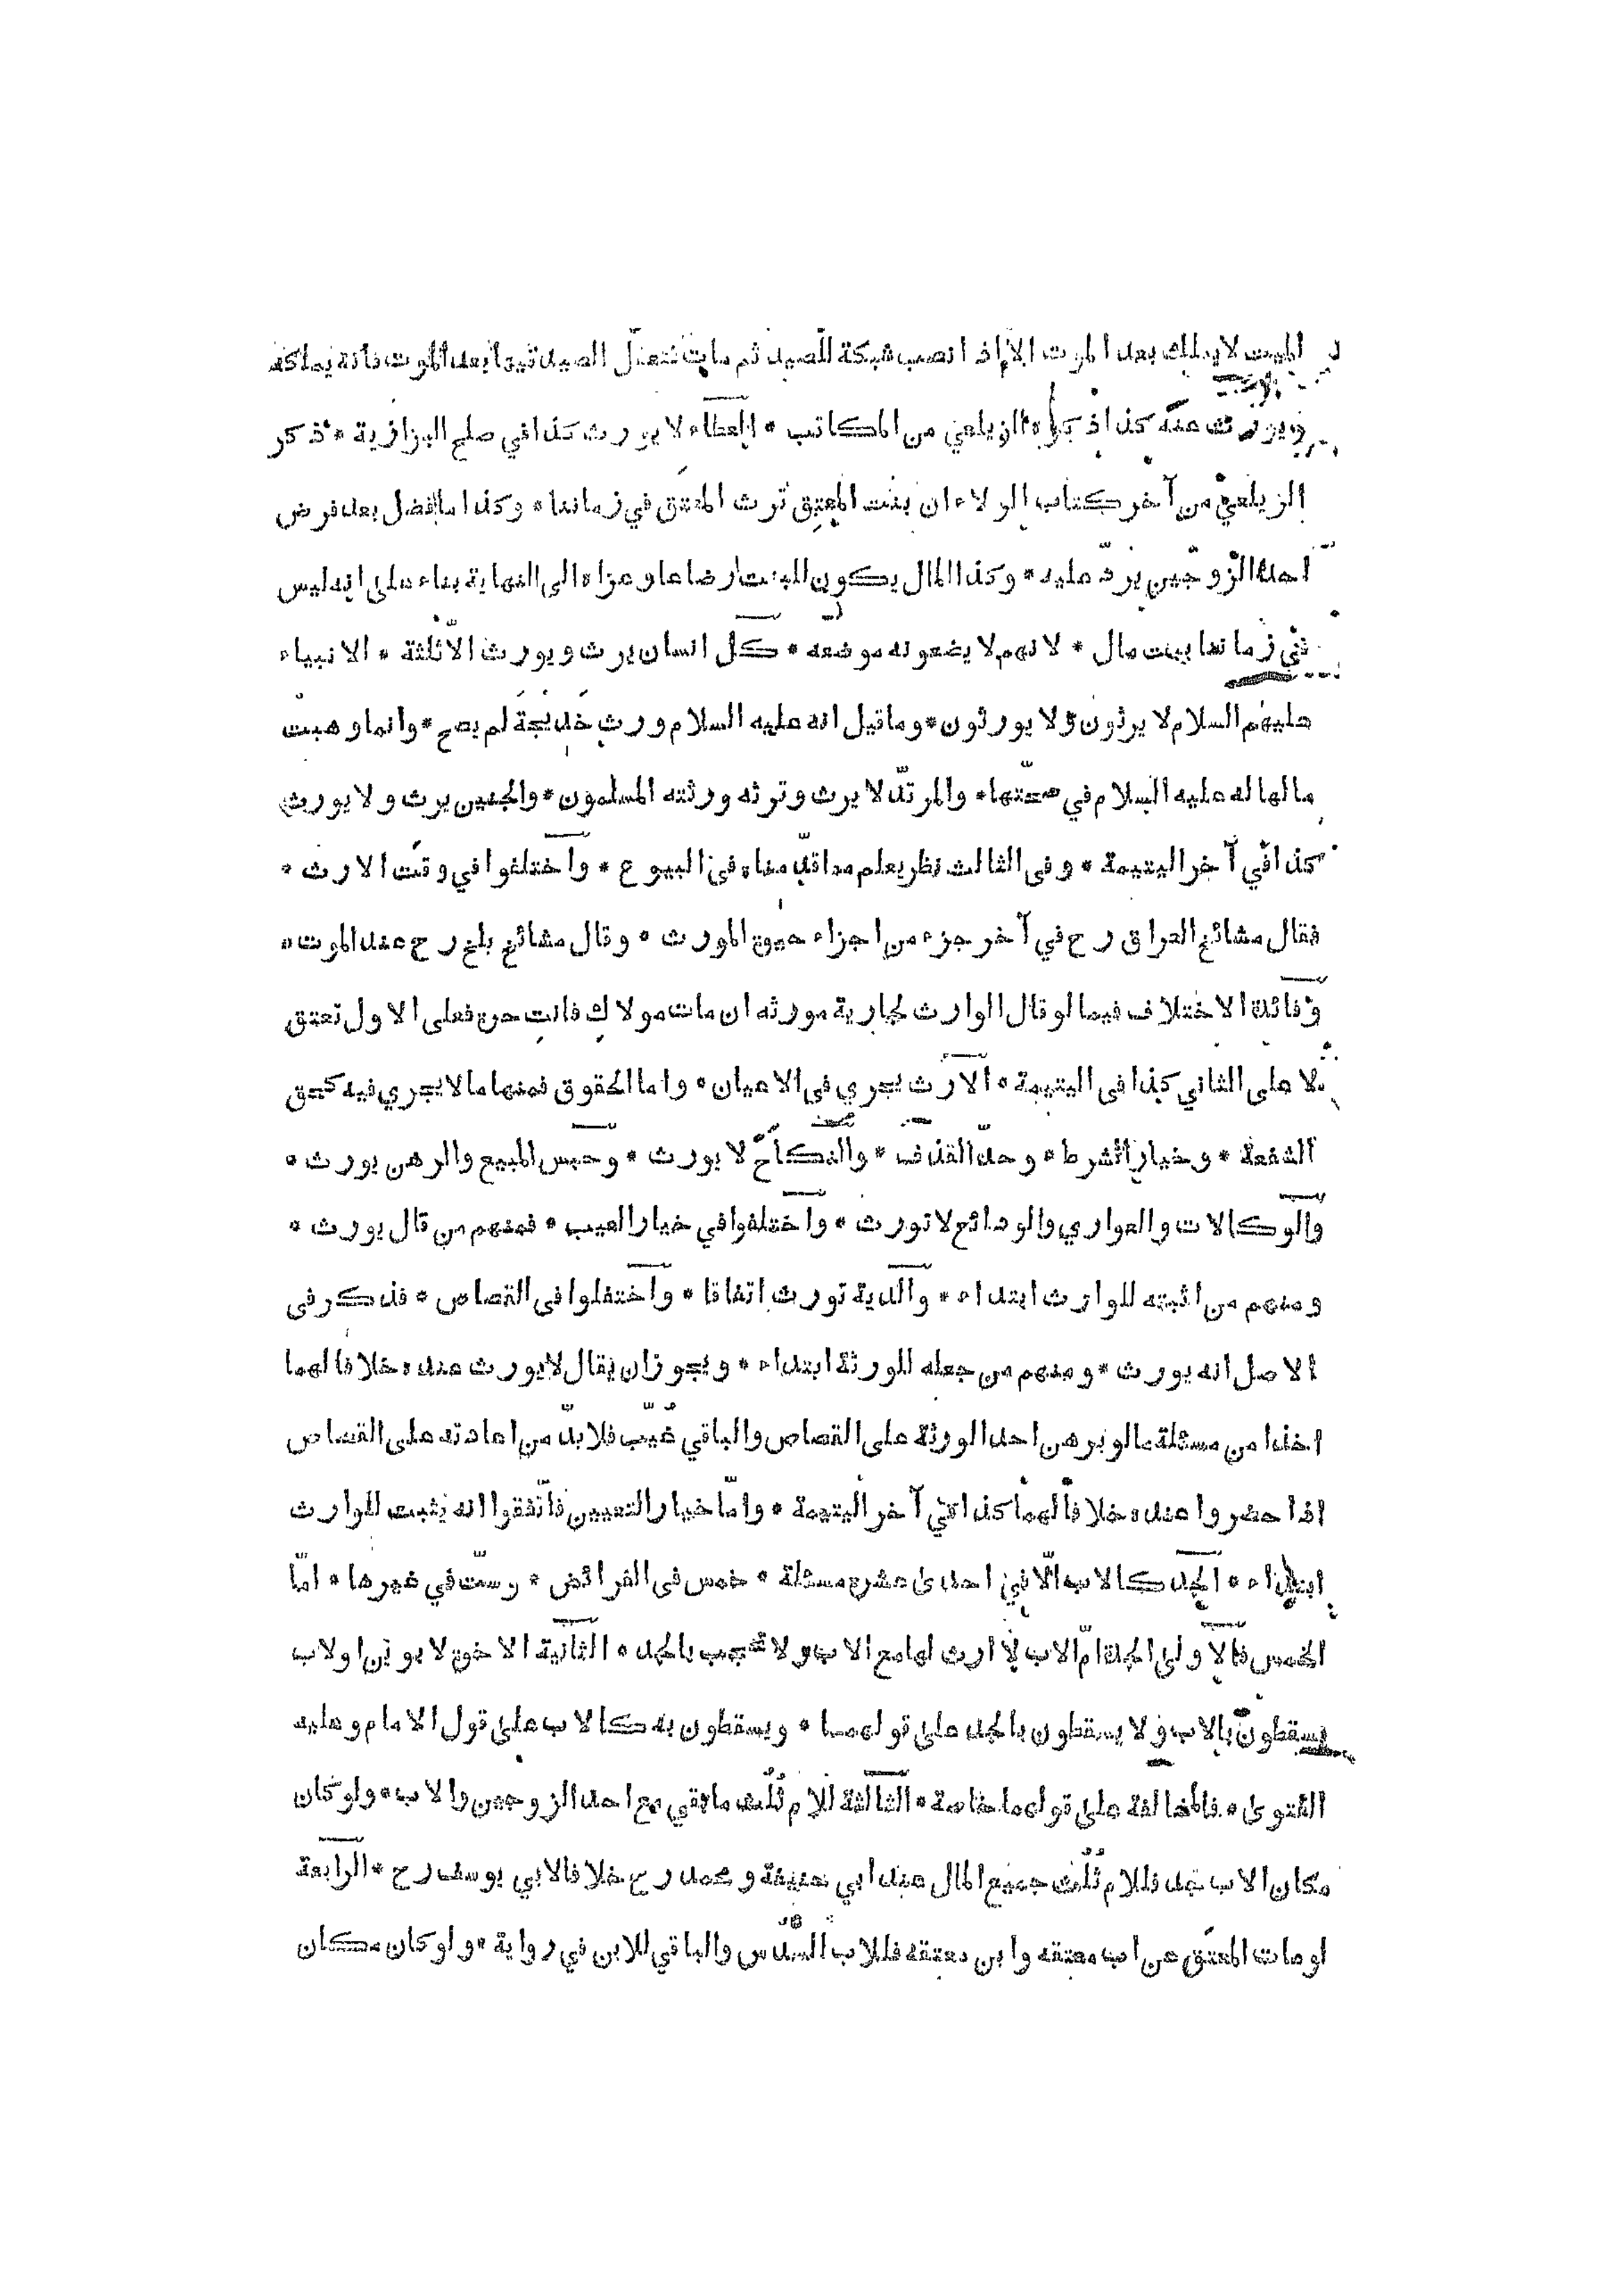 الميت لا يملك بعد الموت الا اذا نصب شبكة للصيد ثم مات فتعقل الصيد فيها بعد الموت فانه يملكه
ويورث عنه كذا ذكره الزيلعي من المكاتب * العطاء لا يورث كذا في صلح البزازية * ذكر
الزيلعي من آخر كتاب الولاء ان بنت المعتق ترث المعتق في زماننا * وكذا ما فضل بعد فرض
احد الزوجين يردّ عليه * وكذا المال يكون للبنت رضاعا وعزاه الى النهاية بناء على انه ليس
في زماننا بيت مال * لانهم لا يضعونه موضعه * كل انسان يرث ويورث الّا ثلثة * الانبياء
عليهم السلام لا يرثون ولا يورثون * وما قيل انه عليه السلام ورث خديجة لم يصح * وانما وهبت
مالها له عليه السلام في صحّتها * والمرتدّ لا يرث وترثه ورثته المسلمون * والجنين يرث ولا يورث
كذا في آخر اليتيمة * وفى الثالث نظر يعلم مما قدّمناه فى البيوع * واختلفوا في وقت الارث *
فقال مشائخ العراق رح في آخر جزء من اجزاء حيوة المورث * وقال مشائخ بلخ رح عند الموت *
وفائدة الاختلاف فيما لو قال الوارث لجارية مورثه ان مات مولاك فانت حرة فعلى الاول تعتق
لا على الثاني كذا فى اليتيمة * الارث يجري فى الاعيان * واما الحقوق فمنها ما لا يجري فيه كحق
الشفعة * وخيار الشرط * وحدّ القذف * والنكاح لا يورث * وحبس المبيع والرهن يورث *
والوكالات والعواري والودائع لا تورث * واختلفوا في خيار العيب * فمنهم من قال يورث *
ومنهم من اثبته للوارث ابتداء * والدية تورث اتفاقا * واختفلوا فى القصاص * فذكر فى
الاصل انه يورث * ومنهم من جعله للورثة ابتداء * ويجوز ان يقال لا يورث عنده خلافا لهما
اخذا من مسئلة ما لو برهن احد الورثة على القصاص والباقي غُيّب فلا بدّ من اعادته على القصاص
اذا حضروا عنده خلافا لهما كذا في آخر اليتيمة * وامّا خيار التعيين فاتّفقوا انه يثبت للوارث
ابتداء * الجد كالاب الّا في احدى عشرة مسئلة * خمس فى الفرائض * وستّ في غيرها * امّا
الخمس فالاولى الجدة امّ الاب لا ارث لها مع الاب ولا تحجب بالجد * الثانية الاخوة لابوين او لاب
يسقطون بالاب ولا يسقطون بالجد على قولهما * ويسقطون به كالاب على قول الامام وعليه
الفتوى * فالمخالفة على قولهما خاصة * الثالثة للام ثُلُث ما بقي مع احد الزوجين والاب * ولو كان
مكان الاب جد فللام ثُلُث جميع المال عند ابي حنيفة ومحمد رح خلافا لابي يوسف رح * الرابعة
لو مات المعتق عن اب معتقه وابن معتقه فللاب السُّدُس والباقي للابن في رواية * ولو كان مكان